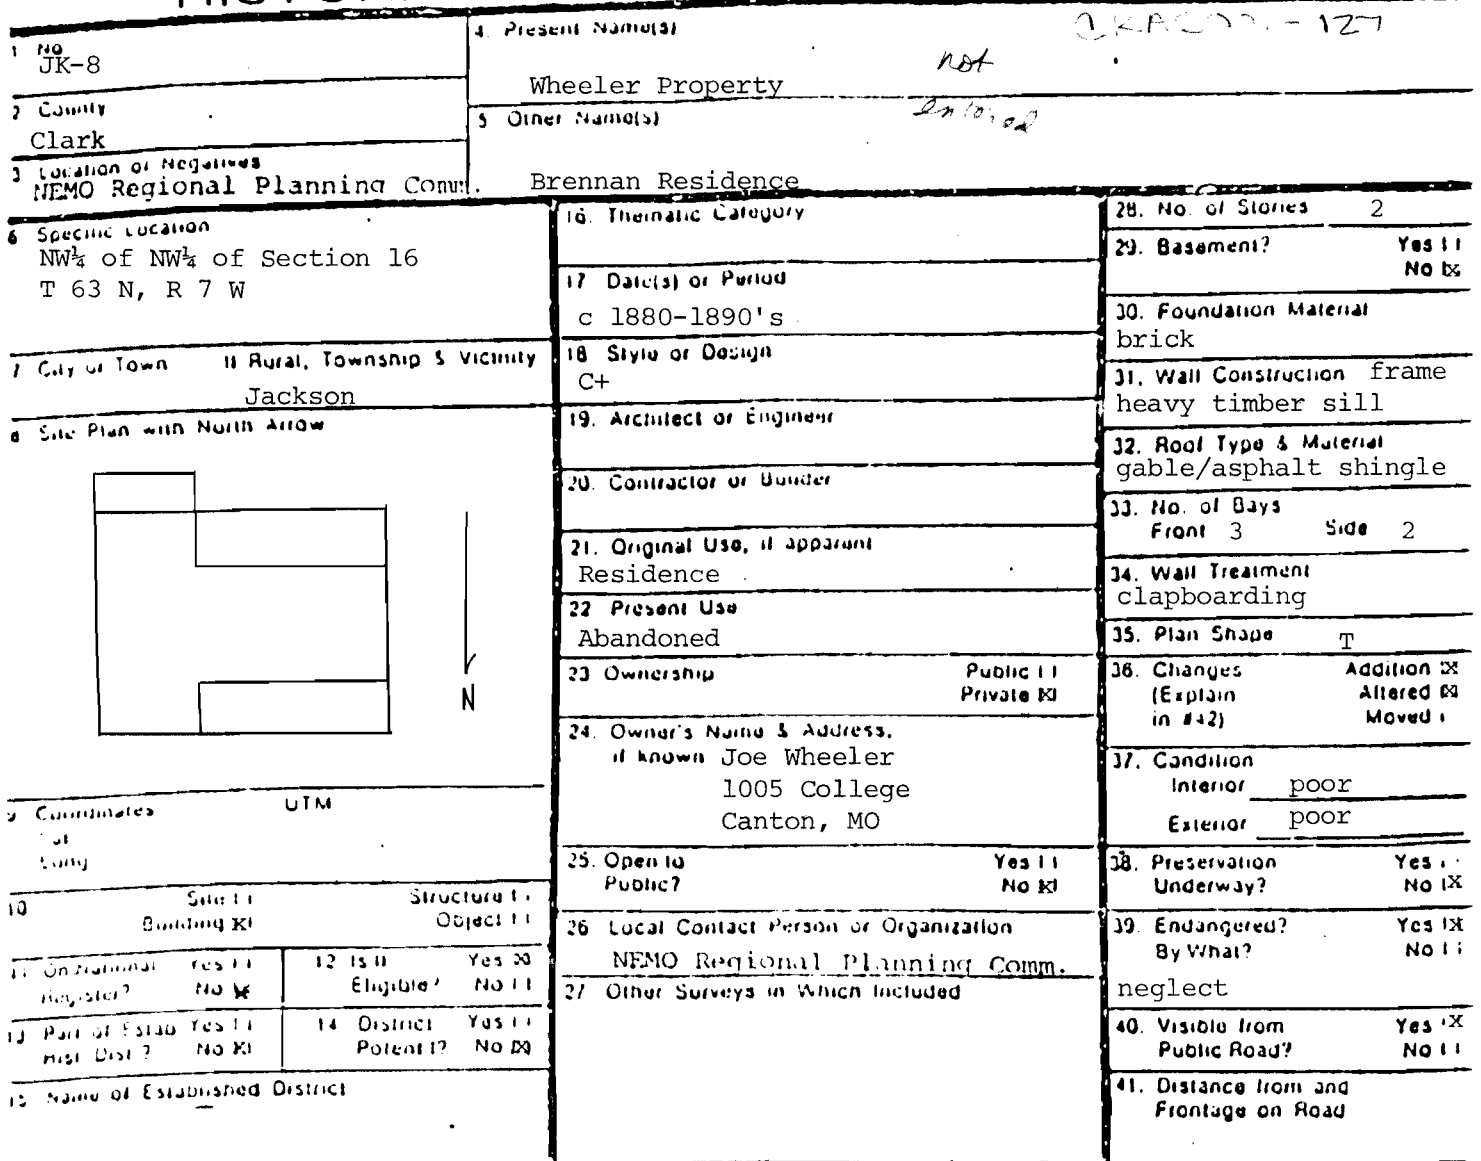 1 No.
JK-8
2 County
Clark
3 Location of Negatives
NEMO Regional Planning Comm.
4. Present Name(s)
Wheeler Property
not
entered
- 127
5 Other Name(s)
Brennan Residence
6 Specific Location
NW¼ of NW¼ of Section 16
T 63 N, R 7 W
7 City or Town If Rural, Township & Vicinity
Jackson
8 Site Plan with North Arrow
N
9 Coordinates UTM
Lat
Long
10 Site [ ] Structure [ ]
Building [X] Object [ ]
11 On National Yes [ ]
Register? No [X]
12 Is it Yes [X]
Eligible? No [ ]
13 Part of Estab Yes [ ]
Hist. Dist.? No [X]
14 District Yes [ ]
Potent'l? No [X]
15 Name of Established District
16. Thematic Category
17 Date(s) or Period
c 1880-1890's
18 Style or Design
C+
19. Architect or Engineer
20. Contractor or Builder
21. Original Use, if apparent
Residence
22 Present Use
Abandoned
23 Ownership Public [ ]
Private [X]
24. Owner's Name & Address,
if known Joe Wheeler
1005 College
Canton, MO
25. Open to Yes [ ]
Public? No [X]
26 Local Contact Person or Organization
NEMO Regional Planning Comm.
27 Other Surveys in Which Included
28. No. of Stories 2
29. Basement? Yes [ ]
No [X]
30. Foundation Material
brick
31. Wall Construction frame
heavy timber sill
32. Roof Type & Material
gable/asphalt shingle
33. No. of Bays
Front 3 Side 2
34. Wall Treatment
clapboarding
35. Plan Shape T
36. Changes Addition [X]
(Explain Altered [X]
in #42) Moved [ ]
37. Condition
Interior poor
Exterior poor
38. Preservation Yes [ ]
Underway? No [X]
39. Endangered? Yes [X]
By What? No [ ]
neglect
40. Visible from Yes [X]
Public Road? No [ ]
41. Distance from and
Frontage on Road